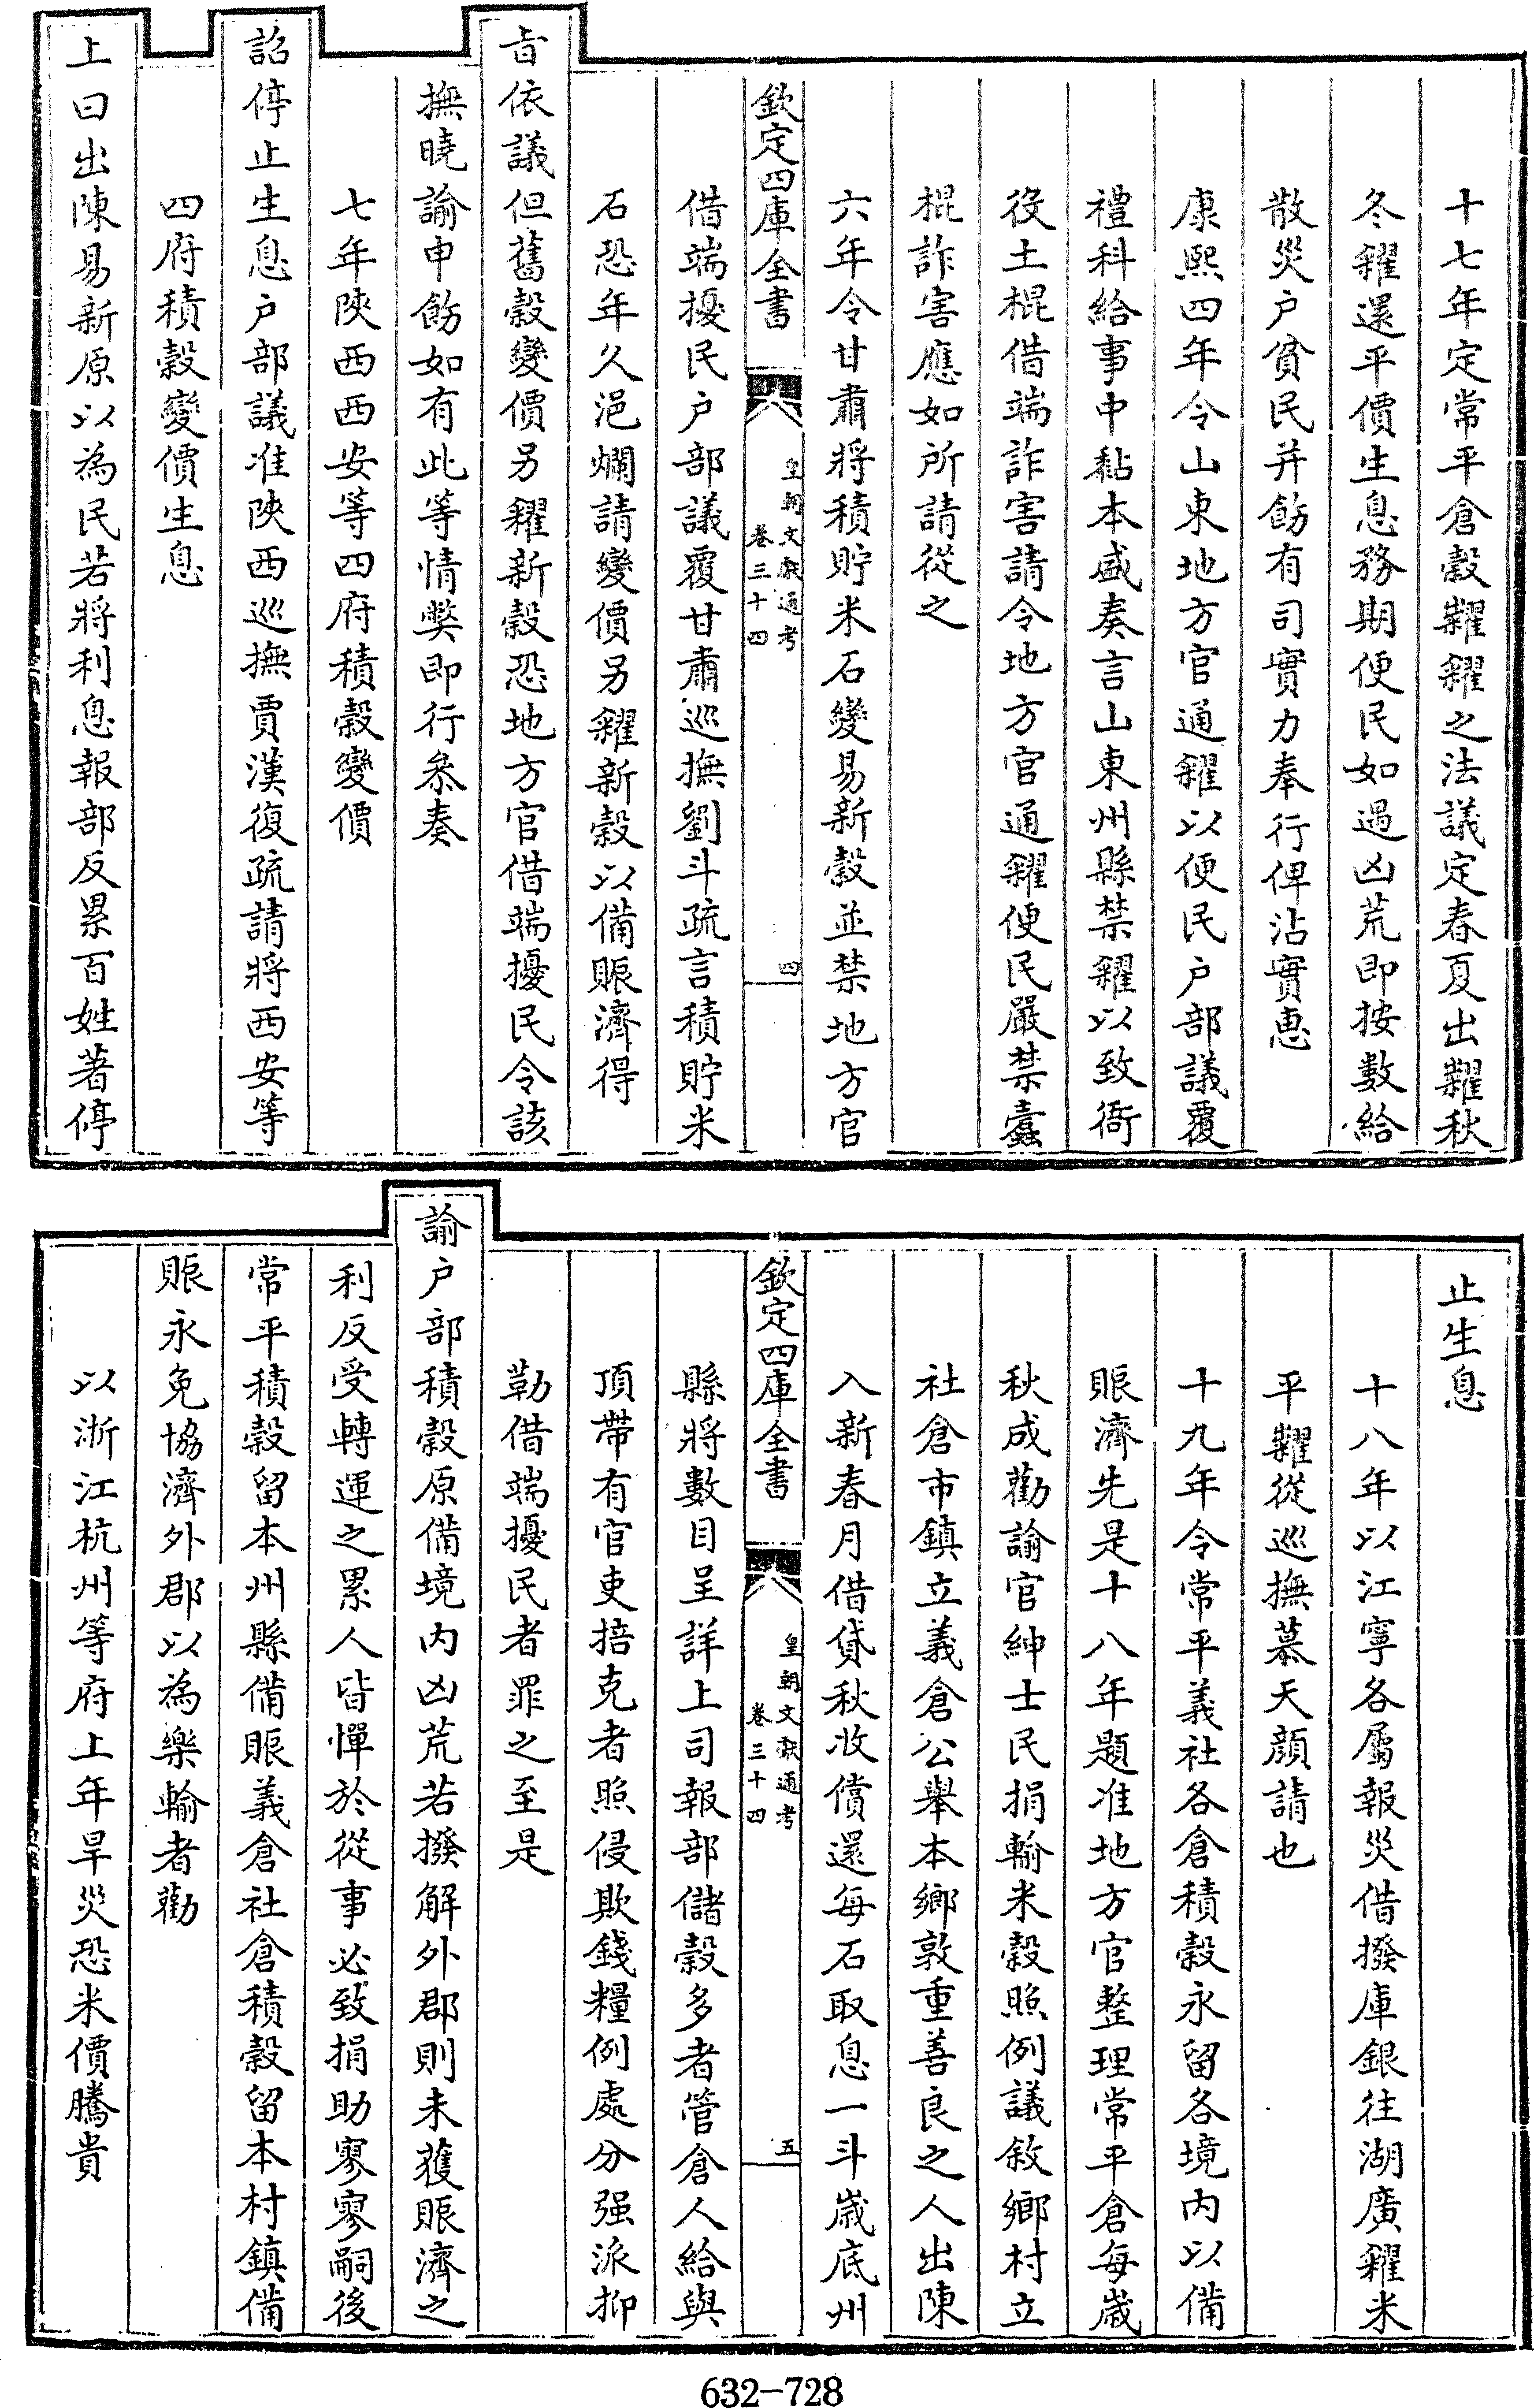 十七年定常平倉穀糶糴之法議定春夏出糶秋
冬糴還平價生息務期便民如遇凶荒即按數給
散災户貧民并飭有司實力奉行俾沾實惠
康熙四年令山東地方官通糴以便民户部議覆
禮科給事中黏本盛奏言山東州縣禁糴以致衙
役土棍借端詐害請令地方官通糴便民嚴禁蠹
棍詐害應如所請從之
六年令甘肅將積貯米石變易新穀並禁地方官
欽定四庫全書
皇朝文獻通考
卷三十四
四
借端擾民户部議覆甘肅巡撫劉斗疏言積貯米
石恐年久浥爛請變價另糴新穀以備賑濟得
㫖依議但舊穀變價另糴新穀恐地方官借端擾民令該
撫曉諭申飭如有此等情獘即行叅奏
七年陜西西安等四府積穀變價
詔停止生息户部議准陜西巡撫賈漢復疏請將西安等
四府積穀變價生息
上曰出陳易新原以為民若將利息報部反累百姓著停
止生息
十八年以江寧各屬報災借撥庫銀往湖廣糴米
平糶從巡撫慕天顔請也
十九年令常平義社各倉積穀永留各境内以備
賑濟先是十八年題准地方官整理常平倉每歳
秋成勸諭官紳士民捐輸米穀照例議敘鄉村立
社倉市鎮立義倉公舉本鄉敦重善良之人出陳
入新春月借貸秋收償還每石取息一斗歳底州
欽定四庫全書
皇朝文獻通考
卷三十四
五
縣將數目呈詳上司報部儲穀多者管倉人給與
頂帶有官吏掊克者照侵欺錢糧例處分强派抑
勒借端擾民者罪之至是
諭户部積穀原備境内凶荒若撥解外郡則未獲賑濟之
利反受轉運之累人皆憚於從事必致捐助寥寥嗣後
常平積穀留本州縣備賑義倉社倉積穀留本村鎮備
賑永免協濟外郡以為樂輸者勸
以浙江杭州等府上年旱災恐米價騰貴
632-728